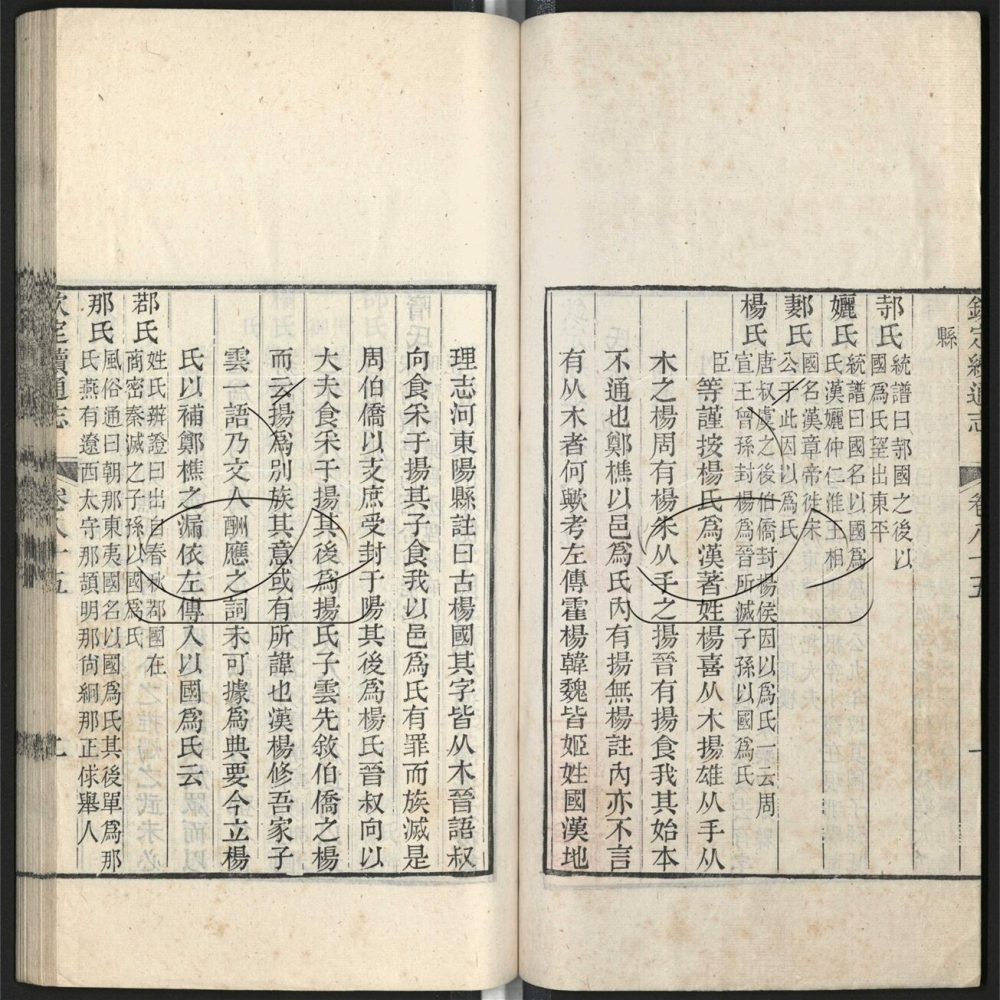 欽定續通志
卷八十五
縣
邿氏
統譜曰邿國之後以
國爲氏望出東平
孋氏
統譜曰國名以國爲
氏漢孋仲仁淮王相
國名漢章帝徙宋
公于此因以爲氏
楊氏
唐叔虞之後伯僑封揚侯因以爲氏一云周
宣王曾孫封楊爲晉所滅子孫以國爲氏
臣等謹按楊氏爲漢著姓楊喜从木揚雄从手从
木之楊周有楊朱从手之揚晉有揚食我其始本
不通也鄭樵以邑爲氏內有揚無楊註內亦不言
有从木者何歟考左傳霍楊韓魏皆姬姓國漢地
理志河東陽縣註曰古楊國其字皆从木晉語叔
向食采于揚其子食我以邑爲氏有罪而族滅是
周伯僑以支庶受封于陽其後爲楊氏晉叔向以
大夫食采于揚其後爲揚氏子雲先敘伯僑之楊
而云揚爲別族其意或有所諱也漢楊修吾家子
雲一語乃文人酬應之詞未可據爲典要今立楊
氏以補鄭樵之漏依左傳入以國爲氏云
鄀氏
姓氏辨證曰出自春秋鄀國在
商密秦滅之子孫以國爲氏
那氏
風俗通曰朝那東夷國名以國爲氏其後單爲那
氏燕有遼西太守那頡明那尙絅那正俅舉人
欽定續通志
卷八十五